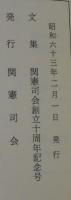 昭和六十三年二月一日　発行
文集　関憲司会創立十周年記念号
発行　関憲司会